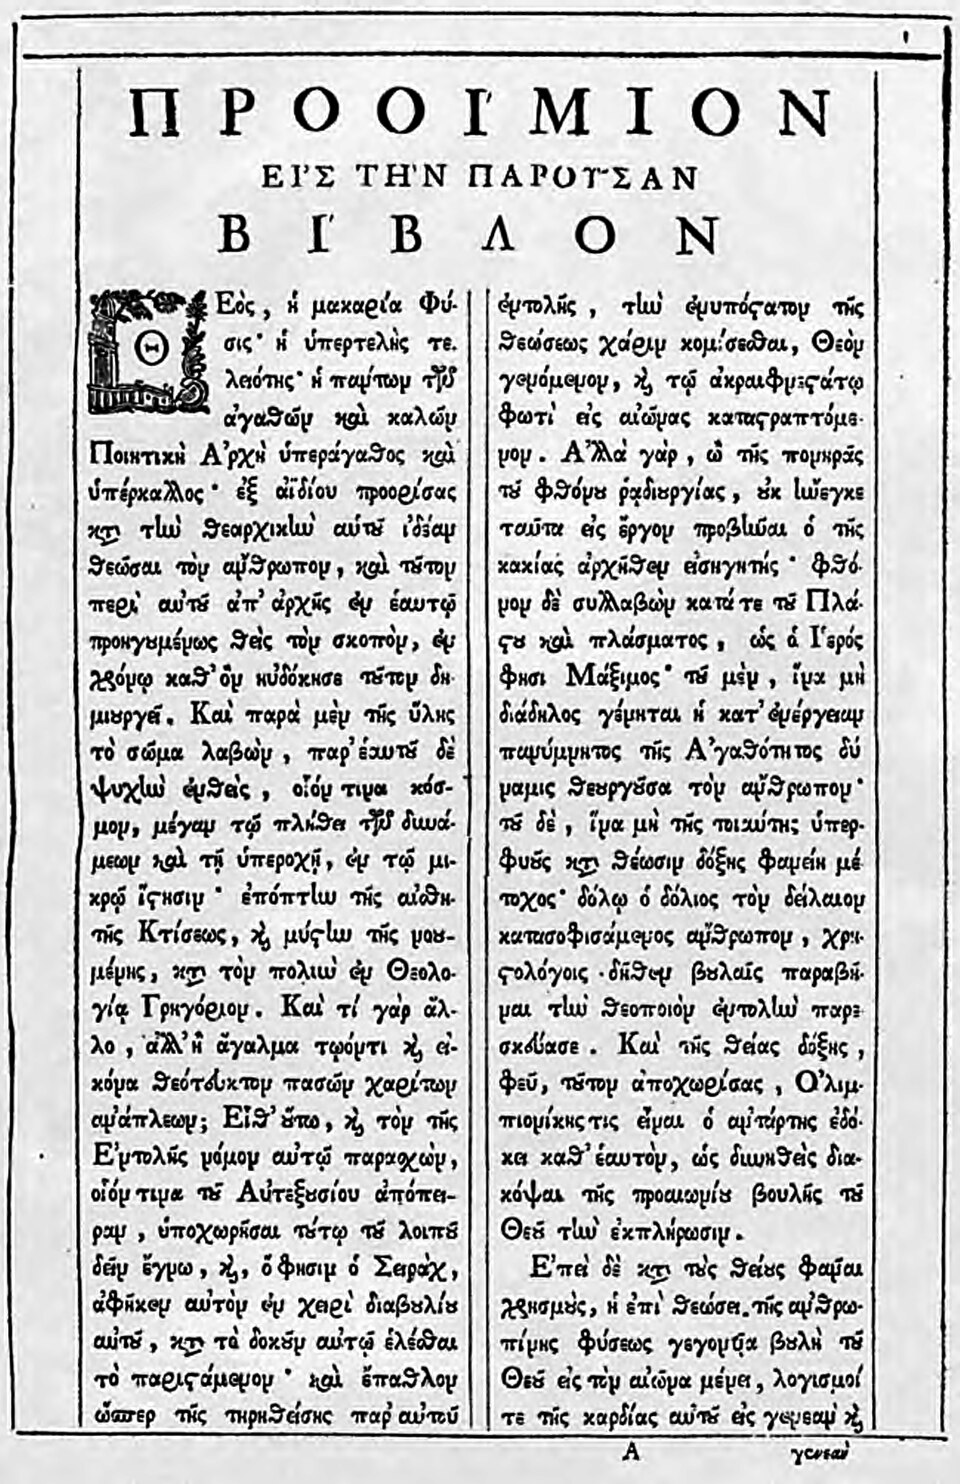 1
ΠΡΟΟΙ´ΜΙΟΝ
ΕΙ᾿Σ ΤΗ`Ν ΠΑΡΟΥ῀ΣΑΝ
ΒΙ´ΒΛΟΝ
Θεὸς, ἡ μακαρία Φύ-
σις· ἡ ὑπερτελὴς τε-
λειότης· ἡ πάντων τῶν
ἀγαθῶν καὶ καλῶν
Ποιητικὴ Ἀρχὴ ὑπεράγαθος καὶ
ὑπέρκαλλος· ἐξ ἀϊδίου προορίσας
κατὰ τὴν θεαρχικὴν αὐτοῦ ἰδέαν
θεῶσαι τὸν ἄνθρωπον, καὶ τοῦτον
περὶ αὐτοῦ ἀπ' ἀρχῆς ἐν ἑαυτῷ
προηγουμένως θεὶς τὸν σκοπὸν, ἐν
χρόνῳ καθ' ὃν ηὐδόκησε τοῦτον δη-
μιουργεῖ. Καὶ παρὰ μὲν τῆς ὕλης
τὸ σῶμα λαβὼν, παρ' ἑαυτοῦ δὲ
ψυχὴν ἐνθεὶς, οἷόν τινα κόσ-
μον, μέγαν τῷ πλήθει τῶν δυνά-
μεων καὶ τῇ ὑπεροχῇ, ἐν τῷ μι-
κρῷ ἵστησιν· ἐπόπτην τῆς αἰσθη-
τῆς Κτίσεως, καὶ μύστην τῆς νοου-
μένης, κατὰ τὸν πολὺν ἐν Θεολο-
γίᾳ Γρηγόριον. Καὶ τί γὰρ ἄλ-
λο, ἀλλ' ἢ ἄγαλμα τῳόντι καὶ εἰ-
κόνα θεότευκτον πασῶν χαρίτων
ἀνάπλεων; Εἶθ' οὕτω, καὶ τὸν τῆς
Ἐντολῆς νόμον αὐτῷ παρασχὼν,
οἷόν τινα τοῦ Αὐτεξουσίου ἀπόπει-
ραν, ὑποχωρῆσαι τούτῳ τοῦ λοιποῦ
δεῖν ἔγνω, καὶ, ὅ φησιν ὁ Σειρὰχ,
ἀφῆκεν αὐτὸν ἐν χειρὶ διαβουλίου
αὐτοῦ, κατὰ τὸ δοκοῦν αὐτῷ ἑλέσθαι
τὸ παριστάμενον· καὶ ἔπαθλον
ὥσπερ τῆς τηρηθείσης παρ' αὐτοῦ
ἐντολῆς, τὴν ἐνυπόστατον τῆς
θεώσεως χάριν κομίσεσθαι, Θεὸν
γενόμενον, καὶ τῷ ἀκραιφνεστάτῳ
φωτὶ εἰς αἰῶνας καταστραπτόμε-
νον. Ἀλλὰ γὰρ, ὢ τῆς πονηρᾶς
τοῦ φθόνου ῥᾳδιουργίας, οὐκ ἤνεγκε
ταῦτα εἰς ἔργον προβῆναι ὁ τῆς
κακίας ἀρχῆθεν εἰσηγητής· φθό-
νον δὲ συλλαβὼν κατά τε τοῦ Πλά-
στου καὶ πλάσματος, ὡς ὁ Ἱερός
φησι Μάξιμος· τοῦ μὲν, ἵνα μὴ
διάδηλος γένηται ἡ κατ' ἐνέργειαν
πανύμνητος τῆς Ἀγαθότητος δύ
ναμις θεουργοῦσα τὸν ἄνθρωπον·
τοῦ δὲ, ἵνα μὴ τῆς τοιαύτης ὑπερ-
φυοῦς κατὰ θέωσιν δόξης φανείη μέ-
τοχος· δόλῳ ὁ δόλιος τὸν δείλαιον
κατασοφισάμενος ἄνθρωπον, χρη-
στολόγοις δῆθεν βουλαῖς παραβῆ-
ναι τὴν θεοποιὸν ἐντολὴν παρε-
σκεύασε. Καὶ τῆς θείας δόξης,
φεῦ, τοῦτον ἀποχωρίσας, Ὀλυμ-
πιονίκης τις εἶναι ὁ ἀντάρτης ἐδό-
κει καθ' ἑαυτὸν, ὡς δυνηθεὶς δια-
κόψαι τῆς προαιωνίου βουλῆς τοῦ
Θεοῦ τὴν ἐκπλήρωσιν.
Ἐπεὶ δὲ κατὰ τοὺς θείους φάναι
χρησμοὺς, ἡ ἐπὶ θεώσει τῆς ἀνθρω-
πίνης φύσεως γεγονυῖα βουλὴ τοῦ
Θεοῦ εἰς τὸν αἰῶνα μένει, λογισμοί
τε τῆς καρδίας αὐτοῦ εἰς γενεὰν καὶ
Α γενεὰν